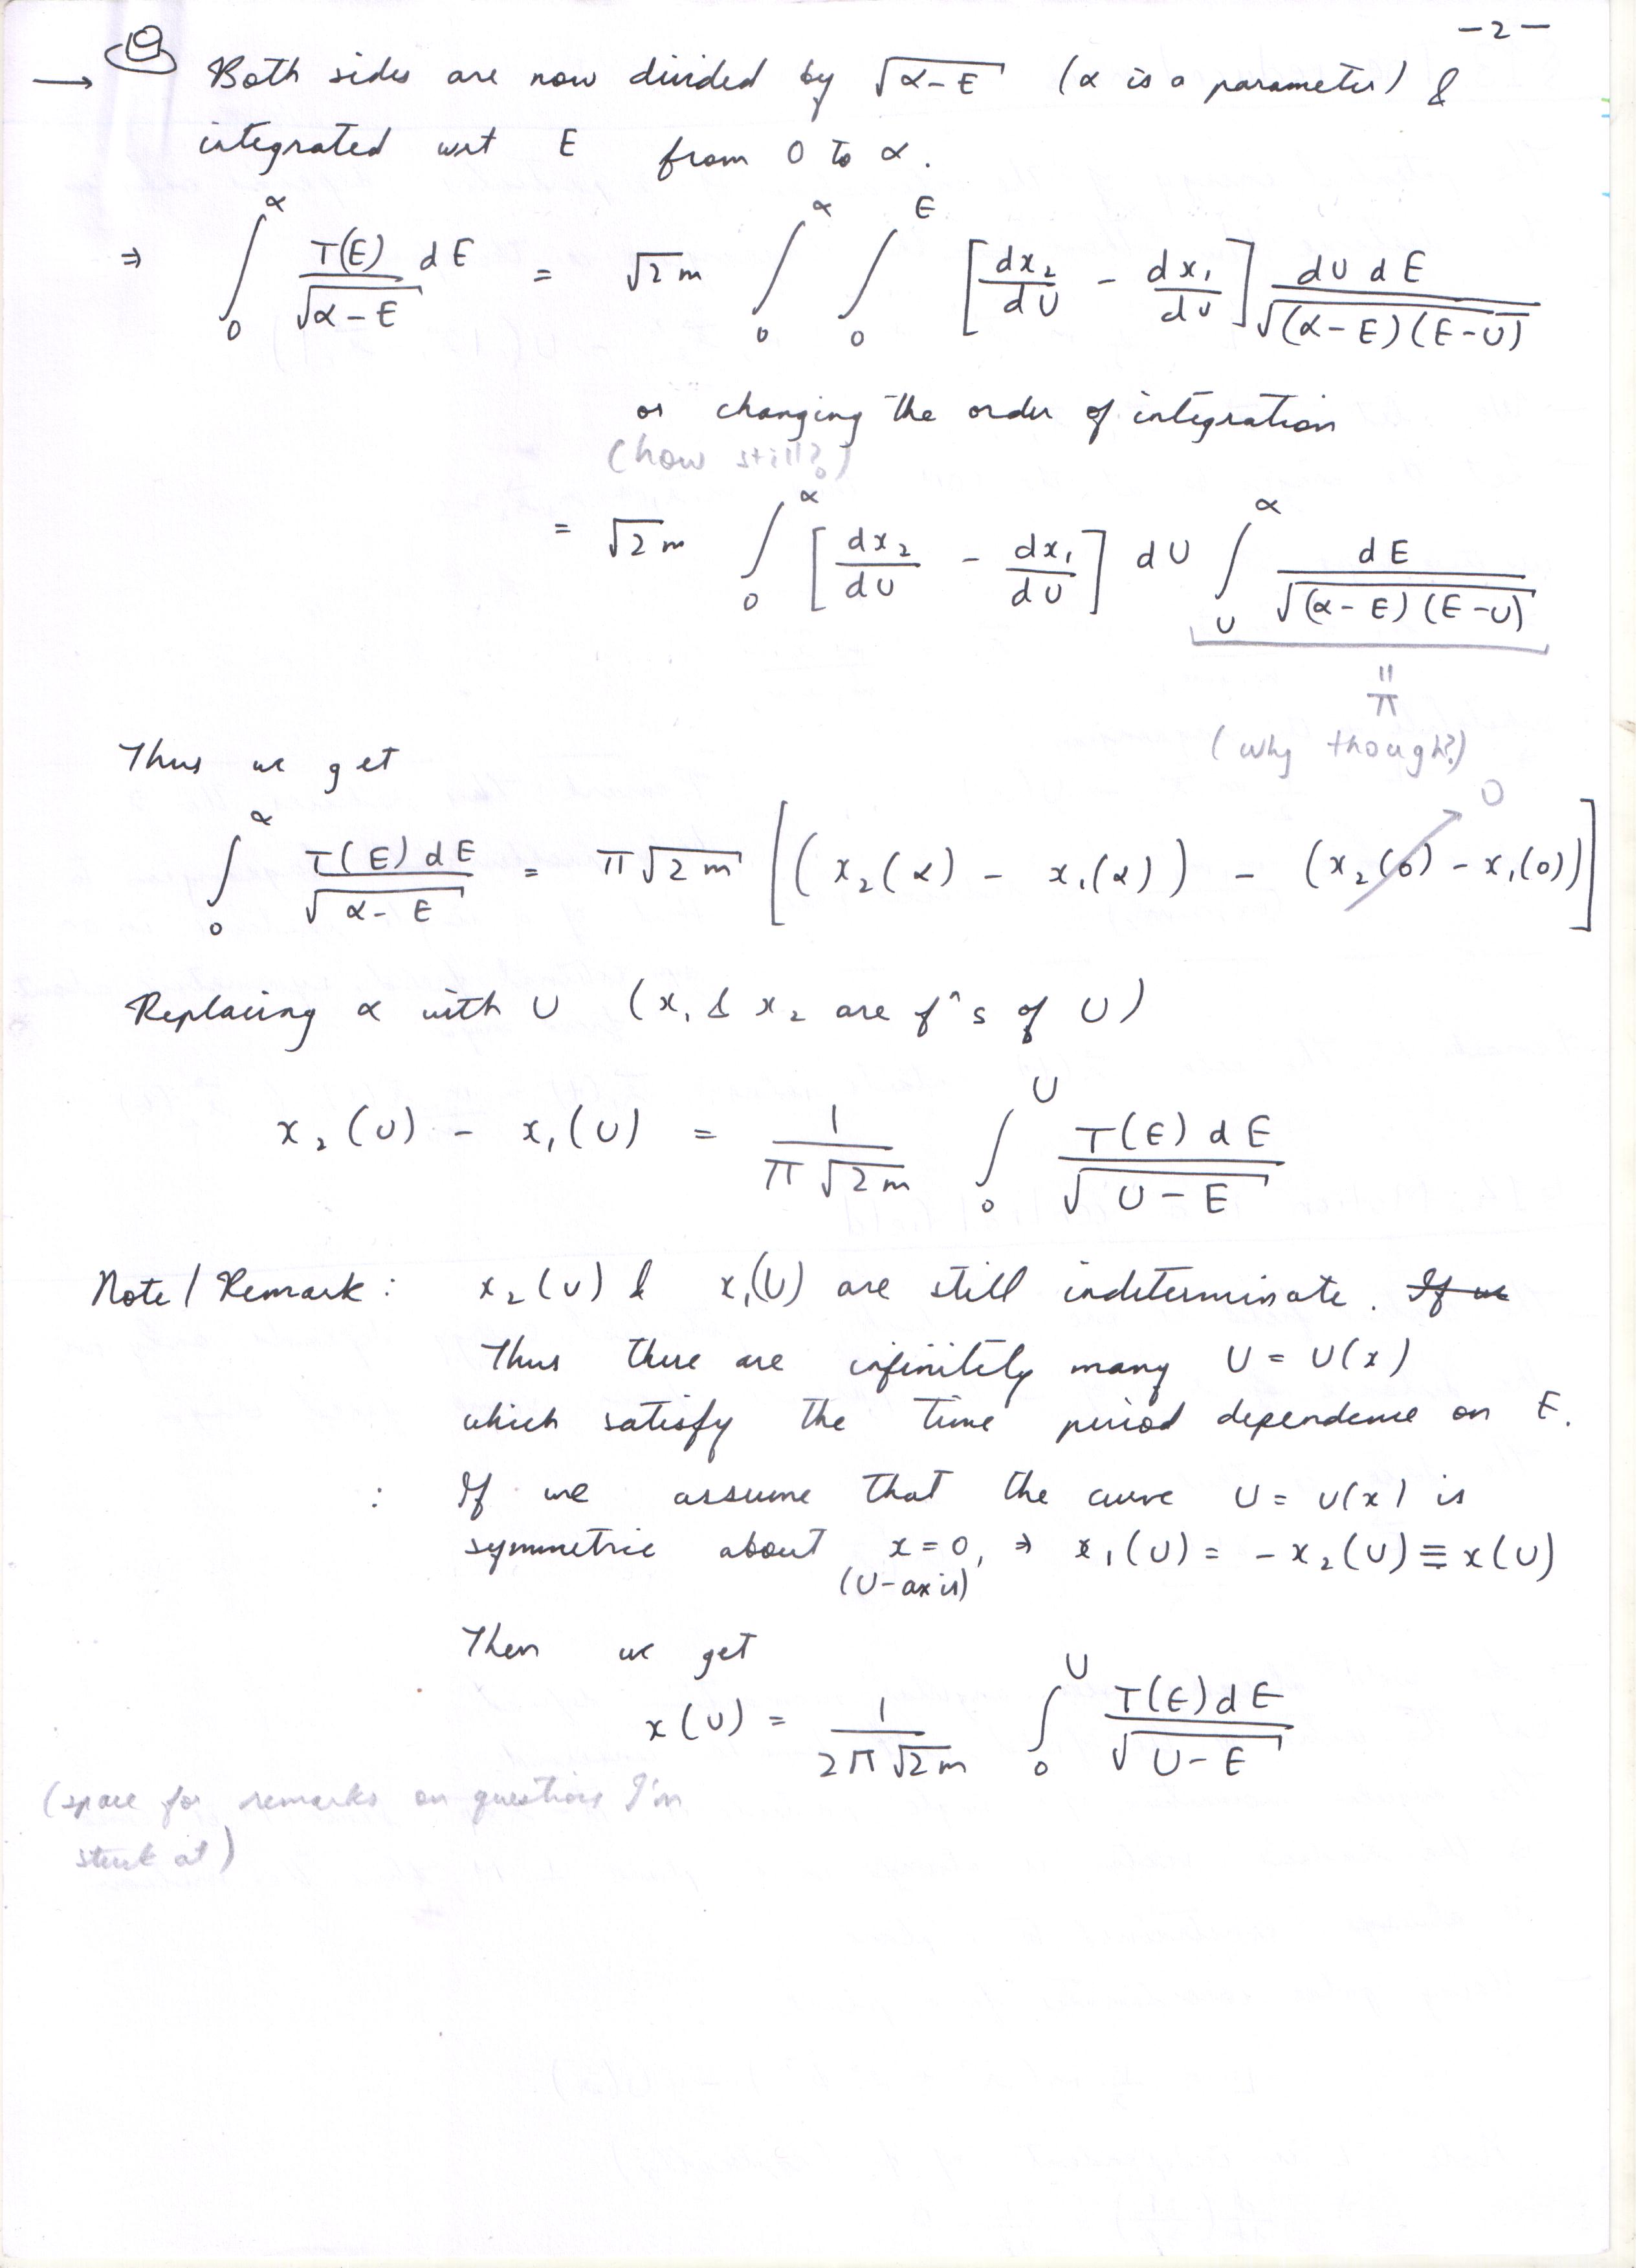 -2-
→ Both sides are now divided by √(α-E) (α is a parameter) &
integrated wrt E from 0 to α.
⇒ ∫₀^α T(E)/√(α-E) dE = √2m ∫₀^α ∫₀^E [dx₂/dU - dx₁/dU] dU dE/√((α-E)(E-U))
or changing the order of integration
(how still?)
= √2m ∫₀^α [dx₂/dU - dx₁/dU] dU ∫_U^α dE/√((α-E)(E-U))
= π
(why though?)
Thus we get
∫₀^α T(E)dE/√(α-E) = π√2m [(x₂(α) - x₁(α)) - (x₂(0) - x₁(0))] → 0
Replacing α with U (x₁ & x₂ are fⁿs of U)
x₂(U) - x₁(U) = 1/(π√2m) ∫₀^U T(E)dE/√(U-E)
Note / Remark : x₂(U) & x₁(U) are still indeterminate. If we
Thus there are infinitely many U = U(x)
which satisfy the time period dependence on E.
: If we assume that the curve U = U(x) is
symmetric about x=0, ⇒ x₁(U) = -x₂(U) ≡ x(U)
(U-axis)
Then we get
x(U) = 1/(2π√2m) ∫₀^U T(E)dE/√(U-E)
(space for remarks on questions I'm
stuck at)